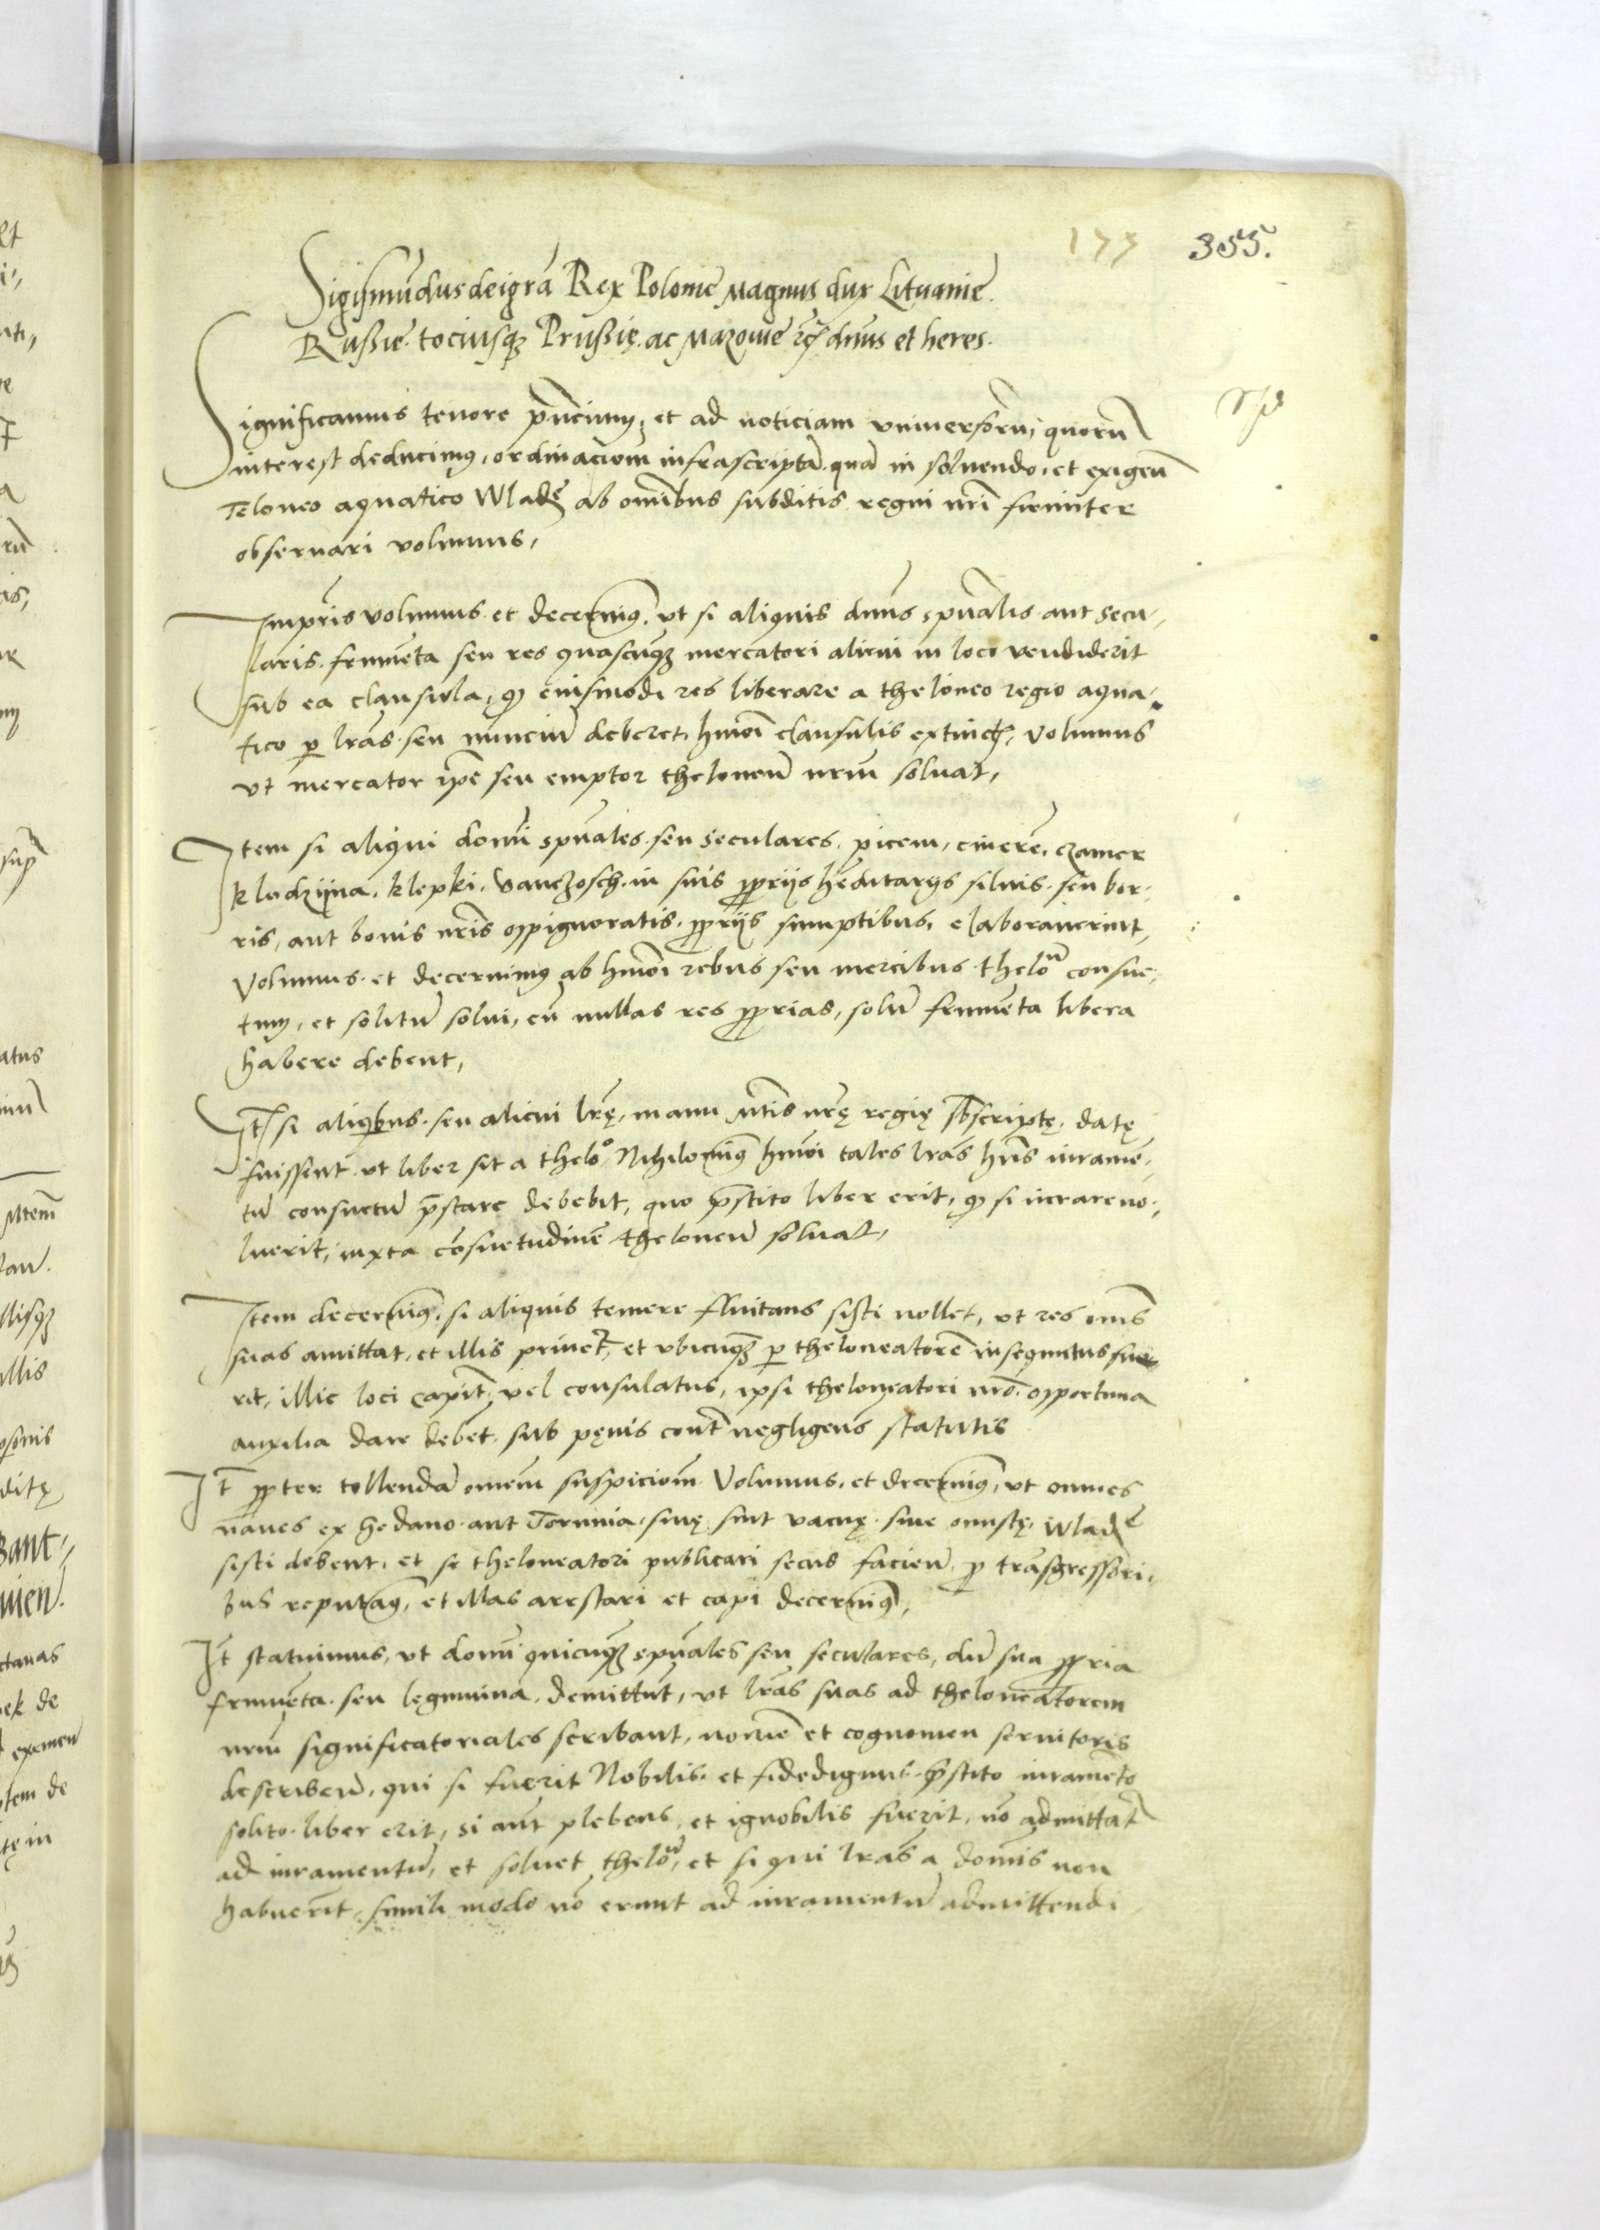 173 355.
Sigismu̅dus dei gra̅ Rex Polonie Magnus dux Lituanie.
Russie. tociusq̃ Prussię. ac Mazouie etc̃ dn̅us et heres.
Significamus tenore pn̅cium, et ad noticiam vniuersoru̅, quoru̅
interest deducimus, ordinaciom infrascripta̅. qua̅ in soluendo, et exigen̅
Teloneo aquatico Wlad̅ę ab omi̅bus subditis regni nr̅i firmiter
obseruari volumus,
Inpri̅s volumus et decernim9. vt si aliquis dn̅us spu̅alis aut secu,
laris. frume̅ta seu res quascu̅q̃ mercatori alicui in loco vendiderit
sub ea clausula, q̃ eiusmodi res liberare a theloneo regio aqua,
tico p̱ lr̅as seu nunciu̅ deberet, hmo̅i clausulis extinct̃, volumus
vt mercator ip̅e seu emptor theloneu̅ nr̅um soluat,
Item si aliqui domi̅ spu̅ales. seu seculares. picem, cinere̅, czamer
kludzÿna, klepki, vanczosch. in suis ꝓprijs he̅ditarijs siluis. seu bor,
ris, aut bonis nr̅is oppignoratis. ꝓprijs sumptibus, elaborauerint,
Volumus. et decernimus ab hmo̅i rebus seu mercibus thelou̅ consue,
tum, et solitu̅ solui, cu̅ nullas res ꝓprias, solu̅ frume̅ta libera
habere debent,
It̃ si aliqibus. seu alicui lr̅ę, manu Mt̅is nr̅ę regię sb̅scriptę, datę
fuissent vt liber sit a thelo̊. Nihilomin9 hmo̅i tales lr̅as hn̅s iurame̅,
tu̅ consuetu̅ p̅stare debebit, quo p̅stito liber erit, q̃ si iurare no,
luerit, iuxta co̅suetudine̅ theloneu̅ soluat,
Item decernim9, si aliquis temere fluitans sisti nollet, vt res om̅s
suas amittat, et illis priuet᷑, et vbicu̅q̃ p̱ theloneatore̅ insequutus fue
rit, illic loci capit̃, vel consulatus, ipsi theloneatori nr̅o. opportuna
auxilia dare debet sub pęnis cont̃ negligens statutis
It̃ ꝓpter tollenda̅ omem̅ suspiciom̅ Volumus, et decernim9, vt omnes
naues ex Gedano aut Torunia, siuę sint vacuę siue onustę, Wlad̅ę
sisti debent, et se theloneatori publicari secus facien̅ p̱ tra̅sgressori,
bus reputam9, et illas arestari et capi decernim9,
It̃ statuimus, vt domi̅ quicu̅q̃ spu̅ales seu seculares, du̅ sua ꝓpria
frume̅ta seu legumina, demittu̅t, vt lr̅as suas ad theloneatorem
nr̅um significatoriales scribant, nome̅ et cognomen seruitoris
describen̅, qui si fuerit Nobilis. et fidedignus p̅stito iurame̅to
solito liber erit, si aut̅ plebeus, et ignobilis fuerit, no̅ admittat᷑
ad iuramentu̅, et soluet thelou̅, et si qui lr̅as a domi̅s non
habuerit, simili modo no̅ erunt ad iuramentu̅ admittendi